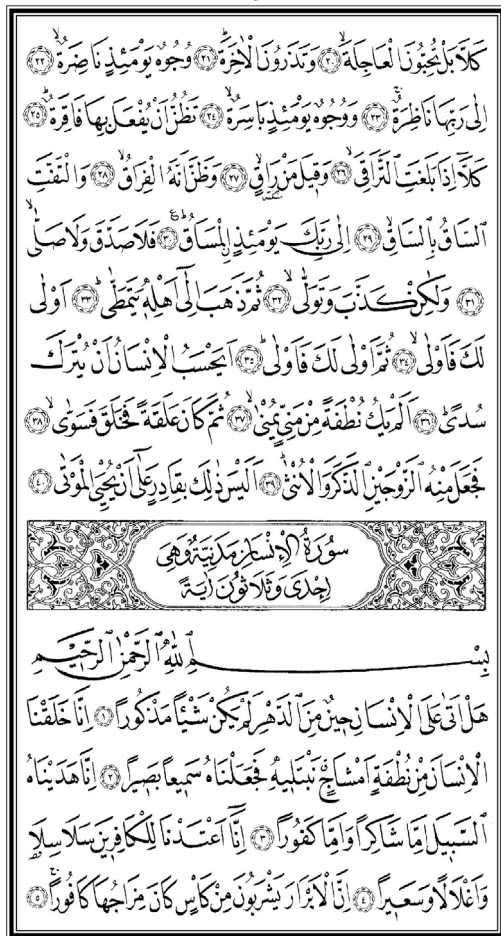 كَلَّا بَلْ تُحِبُّونَ الْعَاجِلَةَۙ ﴿٢٠﴾ وَتَذَرُونَ الْاٰخِرَةَۜ ﴿٢١﴾ وُجُوهٌ يَوْمَئِذٍ نَاضِرَةٌۙ ﴿٢٢﴾
اِلٰى رَبِّهَا نَاظِرَةٌۚ ﴿٢٣﴾ وَوُجُوهٌ يَوْمَئِذٍ بَاسِرَةٌۙ ﴿٢٤﴾ تَظُنُّ اَنْ يُفْعَلَ بِهَا فَاقِرَةٌۜ ﴿٢٥﴾
كَلَّٓا اِذَا بَلَغَتِ التَّرَاقِيَۙ ﴿٢٦﴾ وَقِيلَ مَنْ رَاقٍۙ ﴿٢٧﴾ وَظَنَّ اَنَّهُ الْفِرَاقُۙ ﴿٢٨﴾ وَالْتَفَّتِ
السَّاقُ بِالسَّاقِۙ ﴿٢٩﴾ اِلٰى رَبِّكَ يَوْمَئِذٍ الْمَسَاقُۜ ﴿٣٠﴾ فَلَا صَدَّقَ وَلَا صَلّٰىۙ
﴿٣١﴾ وَلٰكِنْ كَذَّبَ وَتَوَلّٰىۙ ﴿٣٢﴾ ثُمَّ ذَهَبَ اِلٰٓى اَهْلِهِ يَتَمَطّٰىۜ ﴿٣٣﴾ اَوْلٰى
لَكَ فَاَوْلٰىۙ ﴿٣٤﴾ ثُمَّ اَوْلٰى لَكَ فَاَوْلٰىۜ ﴿٣٥﴾ اَيَحْسَبُ الْاِنْسَانُ اَنْ يُتْرَكَ
سُدًىۜ ﴿٣٦﴾ اَلَمْ يَكُ نُطْفَةً مِنْ مَنِيٍّ يُمْنٰىۙ ﴿٣٧﴾ ثُمَّ كَانَ عَلَقَةً فَخَلَقَ فَسَوّٰىۙ ﴿٣٨﴾
فَجَعَلَ مِنْهُ الزَّوْجَيْنِ الذَّكَرَ وَالْاُنْثٰىۜ ﴿٣٩﴾ اَلَيْسَ ذٰلِكَ بِقَادِرٍ عَلٰٓى اَنْ يُحْيِيَ الْمَوْتٰى ﴿٤٠﴾
سُورَةُ الْاِنْسَانِ مَدَنِيَّةٌ وَهِيَ
اِحْدٰى وَثَلَاثُونَ اٰيَةً
بِسْمِ اللّٰهِ الرَّحْمٰنِ الرَّحِيمِ
هَلْ اَتٰى عَلَى الْاِنْسَانِ حِينٌ مِنَ الدَّهْرِ لَمْ يَكُنْ شَيْـًٔا مَذْكُورًا ﴿١﴾ اِنَّا خَلَقْنَا
الْاِنْسَانَ مِنْ نُطْفَةٍ اَمْشَاجٍۗ نَبْتَلِيهِ فَجَعَلْنَاهُ سَمِيعًا بَصِيرًا ﴿٢﴾ اِنَّا هَدَيْنَاهُ
السَّبِيلَ اِمَّا شَاكِرًا وَاِمَّا كَفُورًا ﴿٣﴾ اِنَّٓا اَعْتَدْنَا لِلْكَافِرِينَ سَلَاسِلَا۬
وَاَغْلَالًا وَسَعِيرًا ﴿٤﴾ اِنَّ الْاَبْرَارَ يَشْرَبُونَ مِنْ كَأْسٍ كَانَ مِزَاجُهَا كَافُورًاۚ ﴿٥﴾